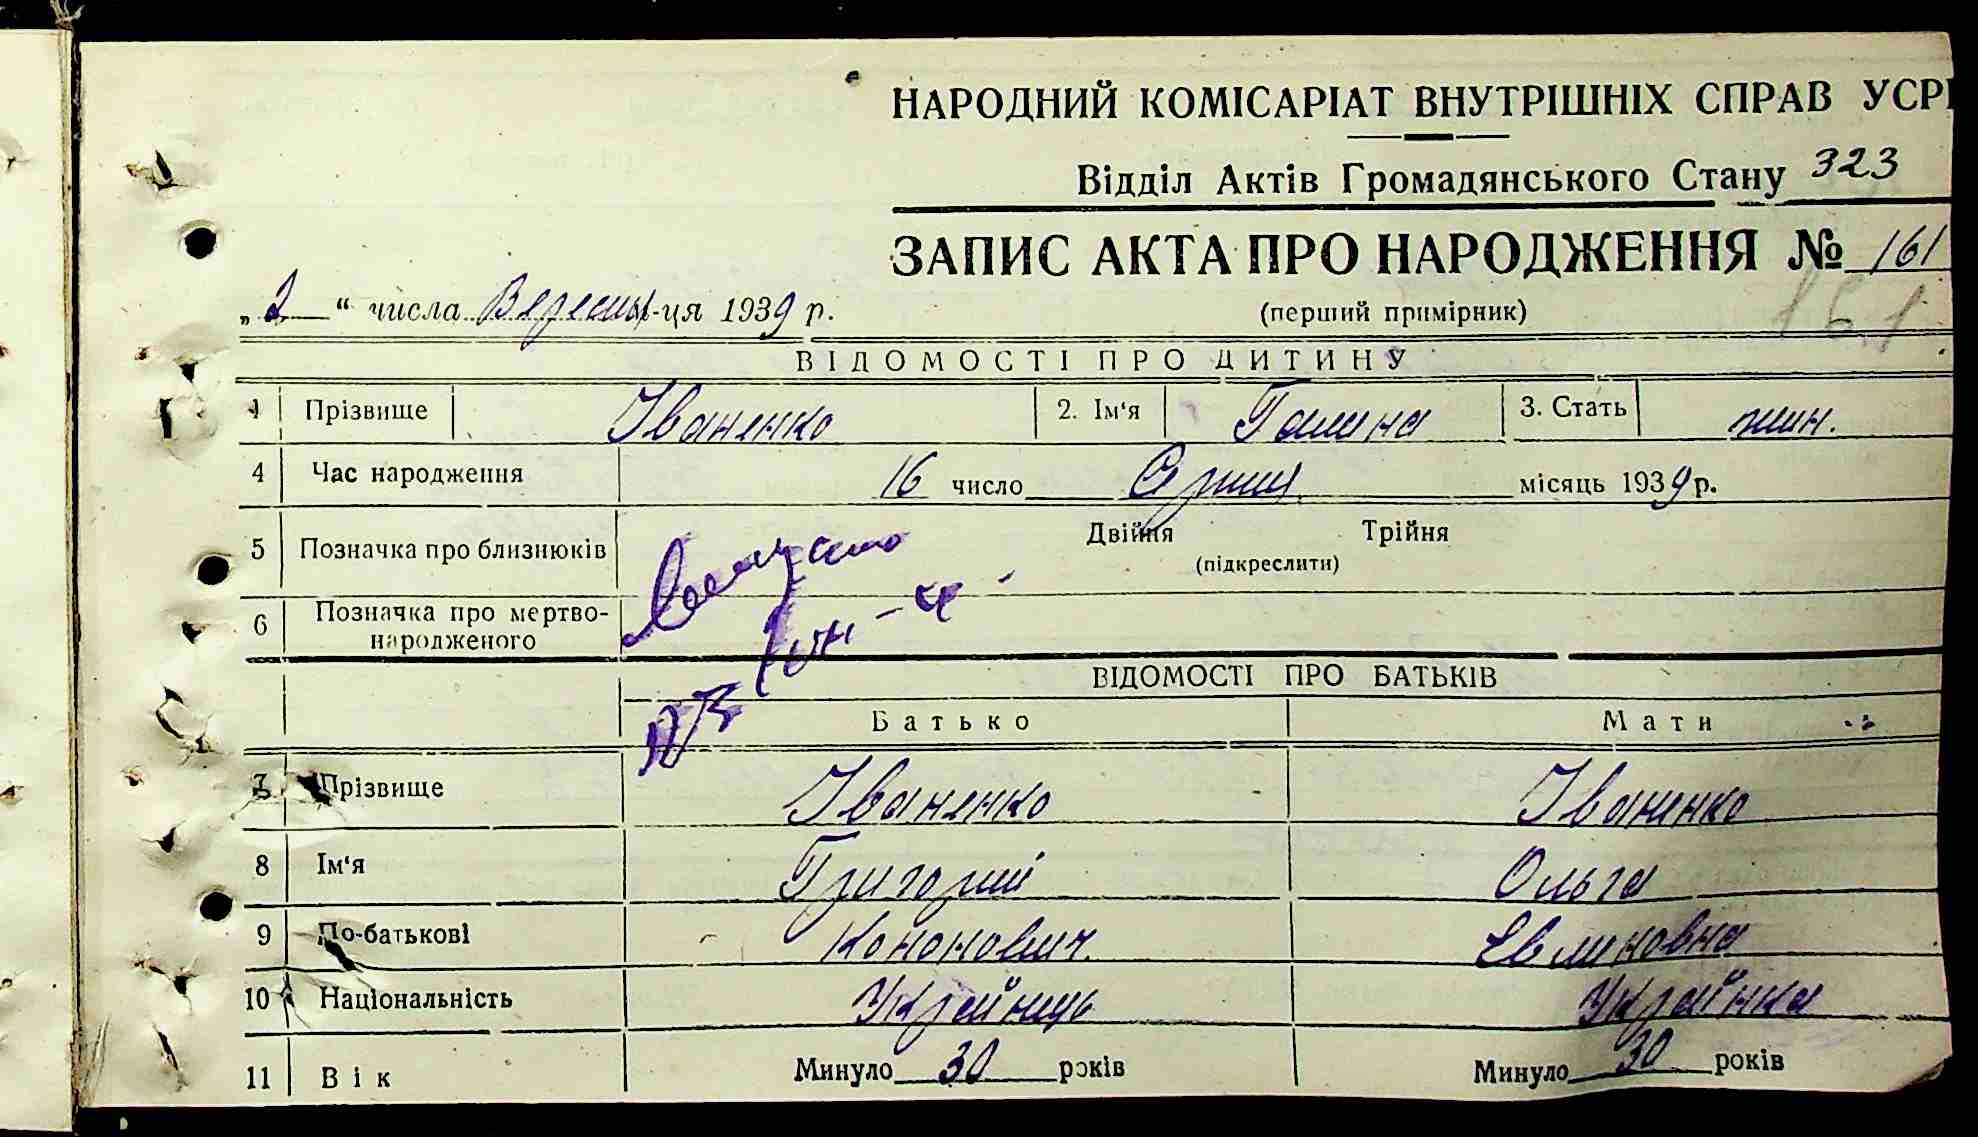 НАРОДНИЙ КОМІСАРІАТ ВНУТРІШНІХ СПРАВ УСРР
Відділ Актів Громадянського Стану 323
ЗАПИС АКТА ПРО НАРОДЖЕННЯ № 161
„2“ числа Вересня-ця 1939 р.
(перший примірник)
151
ВІДОМОСТІ ПРО ДИТИНУ
1 Прізвище Іваненко 2. Ім‘я Галина 3. Стать жін.
4 Час народження 16 число Серпня місяць 1939 р.
5 Позначка про близнюків Двійня Трійня
(підкреслити)
6 Позначка про мертво-
народженого
ВІДОМОСТІ ПРО БАТЬКІВ
Батько Мати
7 Прізвище Іваненко Іваненко
8 Ім‘я Григорій Ольга
9 По-батькові Кононович. 
10 Національність Украйнць Украйнка
11 Вік Минуло 30 років Минуло 30 років